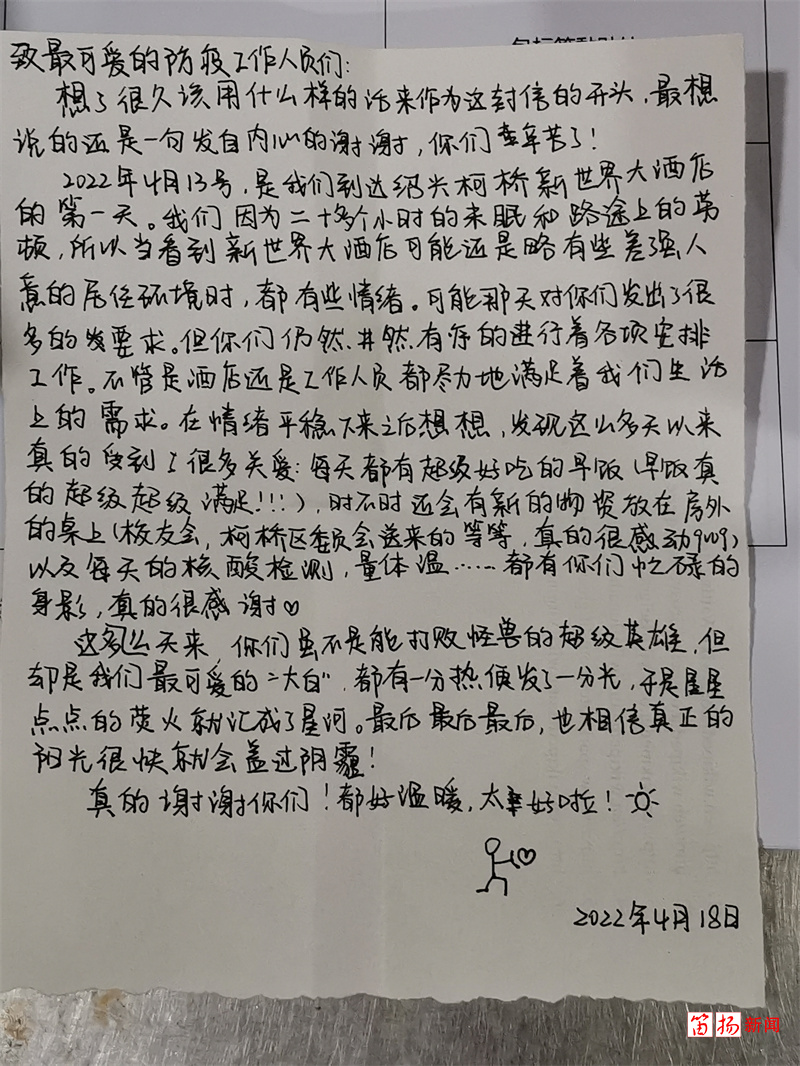 致最可爱的防疫工作人员们:
想了很久该用什么样的话来作为这封信的开头,最想
说的还是一句发自内心的谢谢,你们辛苦了!
2022年4月13号,是我们到达绍兴柯桥新世界大酒店
的第一天。我们因为二十多个小时的未眠和路途上的劳
顿,所以当看到新世界大酒店可能还是略有些差强人
意的居住环境时,都有些情绪。可能那天对你们发出了很
多的要求。但你们仍然井然有序的进行着各项安排
工作。不管是酒店还是工作人员都尽力地满足着我们生活
上的需求。在情绪平稳下来之后想想,发现这么多天以来
真的受到了很多关爱:每天都有超级好吃的早饭(早饭真
的超级超级满足!!!),时不时还会有新的物资放在房外
的桌上(校友会,柯桥区委员会送来的等等,真的很感动)
以及每天的核酸检测,量体温……都有你们忙碌的
身影,真的很感谢♡
这多么天来,你们虽不是能打败怪兽的超级英雄,但
却是我们最可爱的“大白”,都有一分热便发了一分光,于是星星
点点的荧火就汇成了星河。最后最后最后,也相信真正的
阳光很快就会盖过阴霾!
真的谢谢你们!都好温暖,太好啦!
2022年4月18日
笛扬新闻